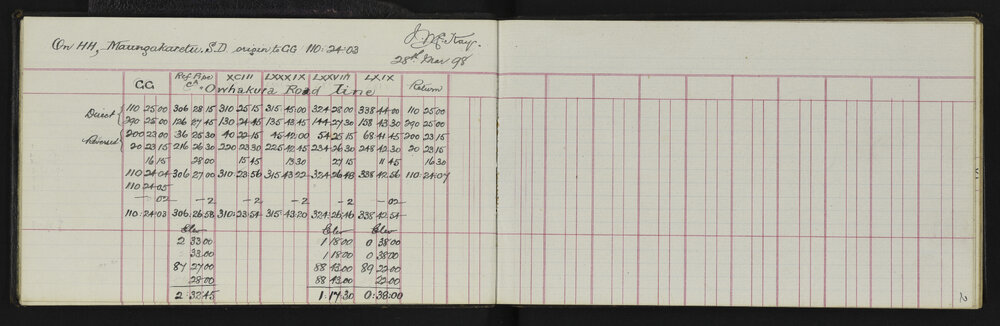 On HH, Maungakaretu. S.D. origin to GG 110:24:03
J. McKay.
28th Mar 98
GG Ref. Pipe XCIII LXXXIX LXXVIII LXIX Return
Owhakura Road Line
Direct 110 25 00 306 28 15 310 25 15 315 45 00 324 28 00 338 44 00 110 25 00
290 25 00 126 27 45 130 24 45 135 43 45 144 27 30 158 43 30 290 25 00
Reversed 200 23 00 36 25 30 40 22 15 45 42 00 54 25 15 68 41 45 200 23 15
20 23 15 216 26 30 220 23 30 225 42 45 234 26 30 248 42 30 20 23 15
16 15 28 00 15 45 13 30 27 15 11 45 16 30
110 24 04 306 27 00 310 23 56 315 43 22 324 26 48 338 42 56 110 24:07
110 24 05
— 02 — 2 — 2 — 2 — 2 — 02
110:24:03 306:26:58 310:23:54 315:43:20 324:26:46 338:42:54
Elev Elev Elev
2 33 00 1 18 00 0 38 00
33 00 1 18 00 0 38 00
87 27 00 88 43 00 89 22 00
28 00 88 43 00 22 00
2:32:45 1:17:30 0:38:00
2